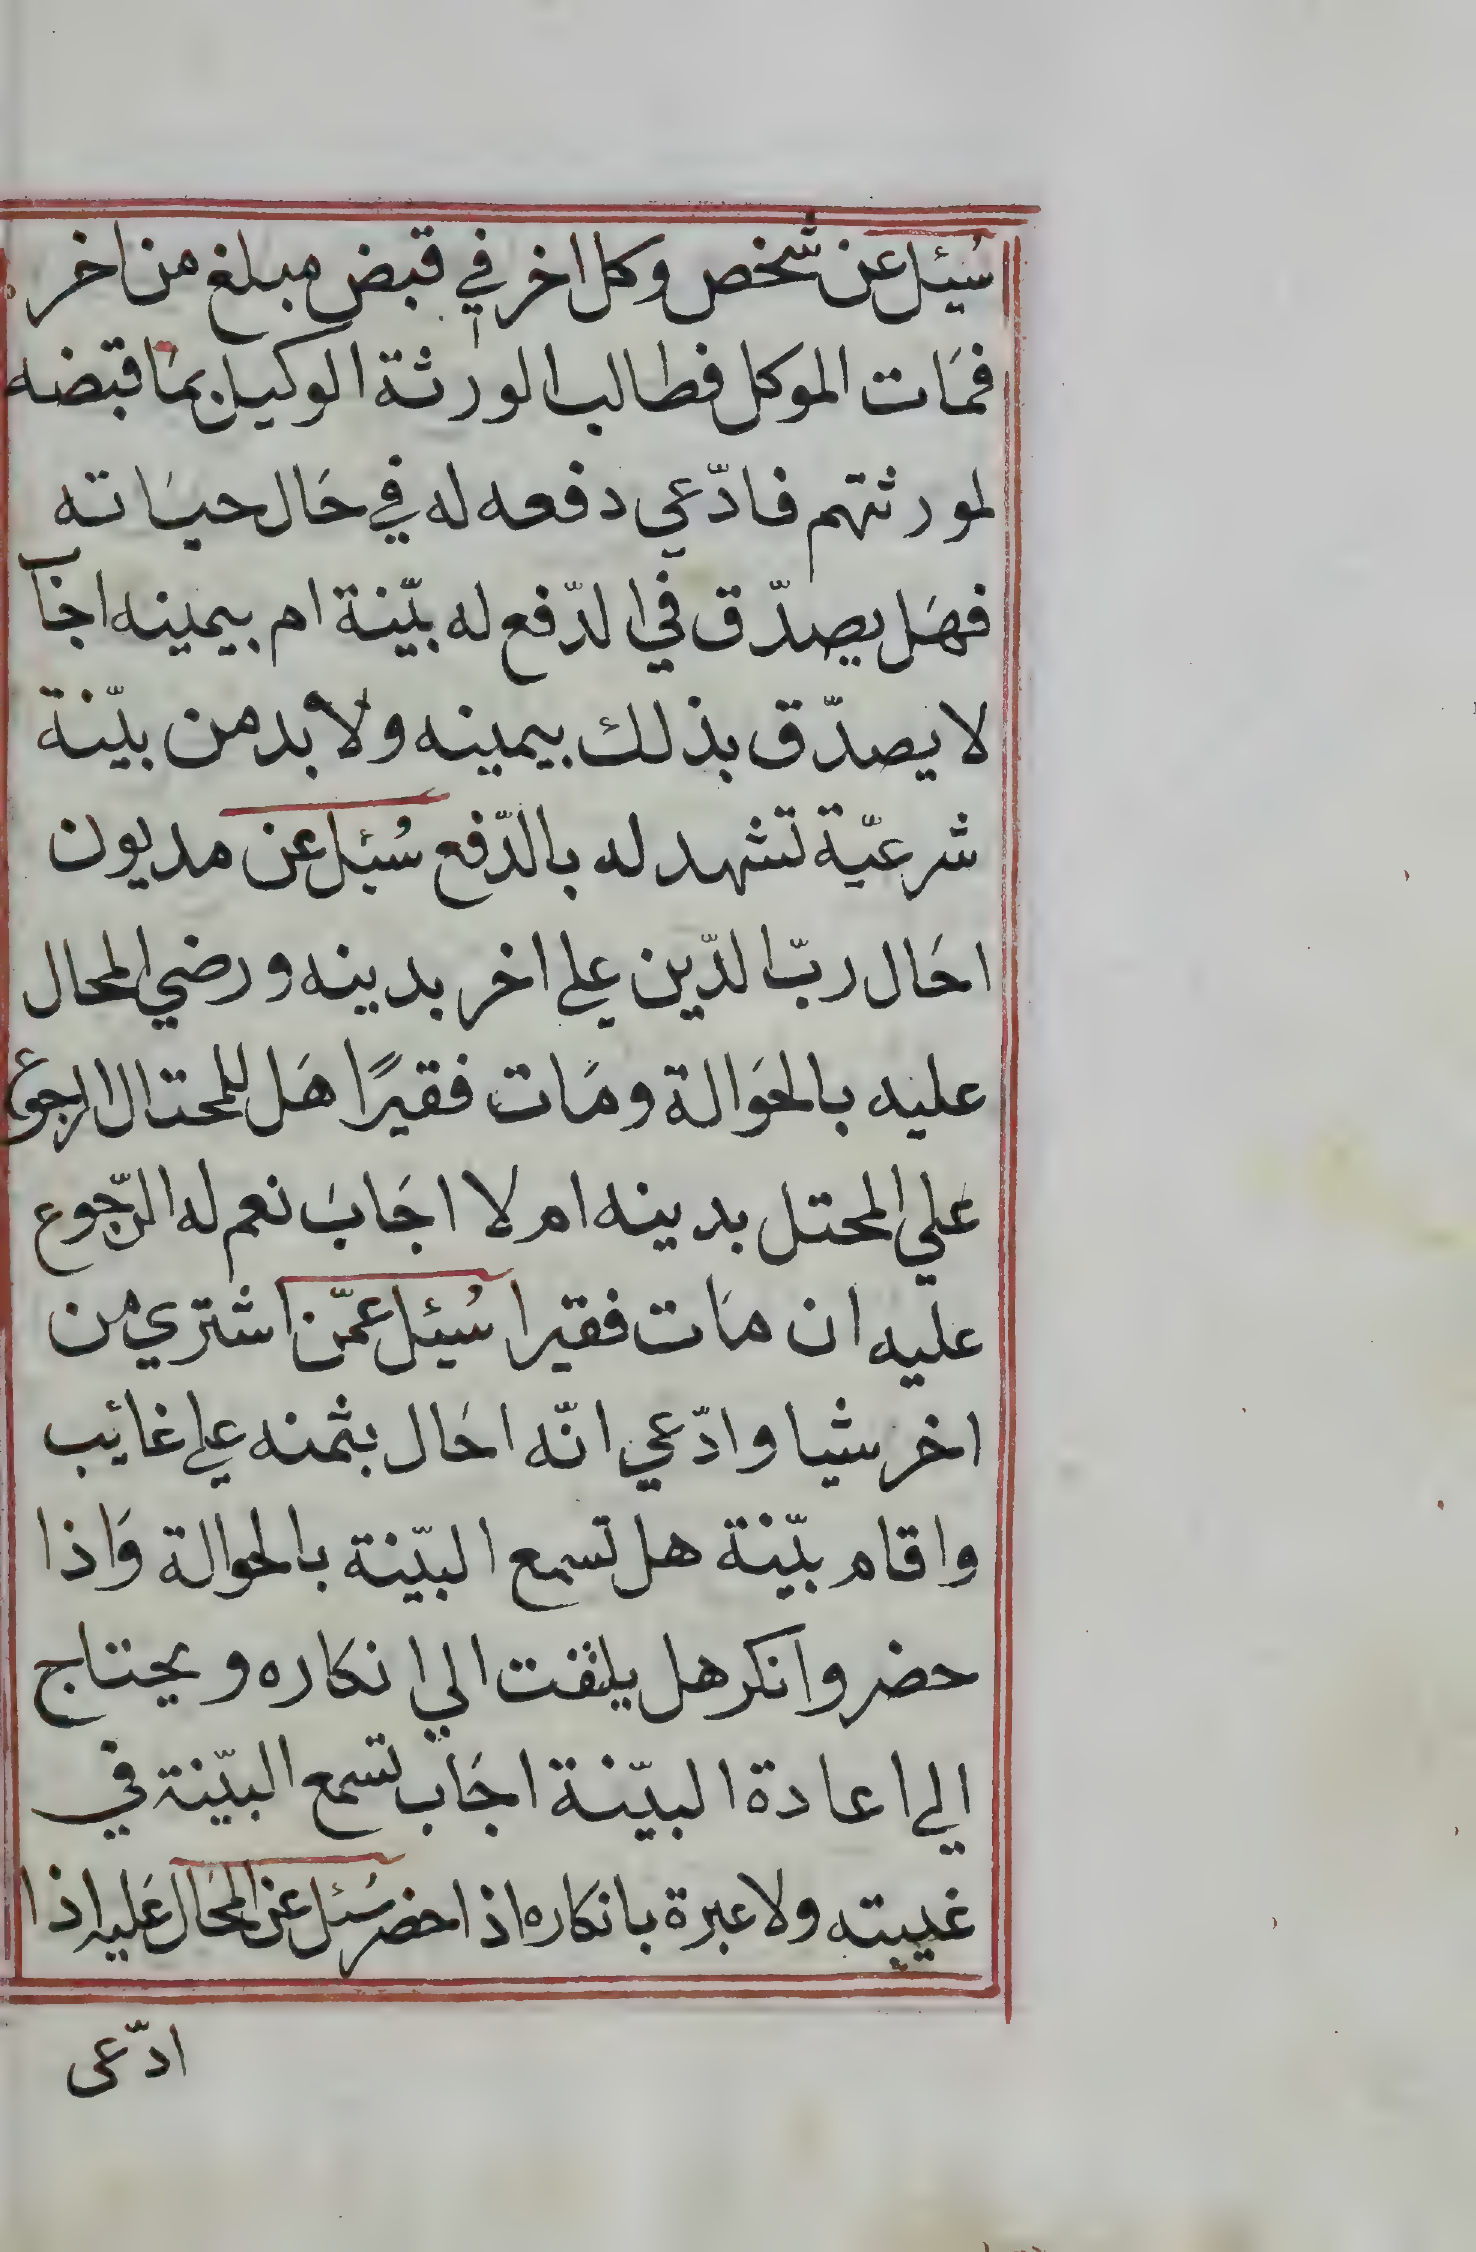 سُئِل عن شخص وكل اخر في قبض مبلغ من اخر
فمَات الموكل فطالب الورثة الوكيل بمَا قبضه
لمورثتهم فادّعي دفعه له في حَال حيَاته
فهَل يصدّق في الدّفع له بيّنة ام بيمينه اجَاب
لا يصدّق بذلك بيمينه ولا بد من بيّنة
شرعيّة تشهد له بالدّفع سُئِل عن مديون
احَال ربّ الدّين علي اخر بدينه ورضي المحال
عليه بالحَوالة ومَات فقيرًا هَل للمحتال الرجوع
علي المحتل بدينه ام لا اجَابَ نعم له الرّجوع
عليه ان مَات فقيرا سُئِل عمّن اشتري من
اخر شيا وادّعي انّه احَال بثمنه علي غائب
واقام بيّنة هل تسمع البيّنة بالحوالة وَاذا
حضر وانكر هل يلتفت الي انكاره ويحتاج
الي اعادة البيّنة اجَاب تسمع البيّنة في
غيبته ولا عبرة بانكاره اذا حضر سُئِل عن المحَال عَليه اذا
ادّعى